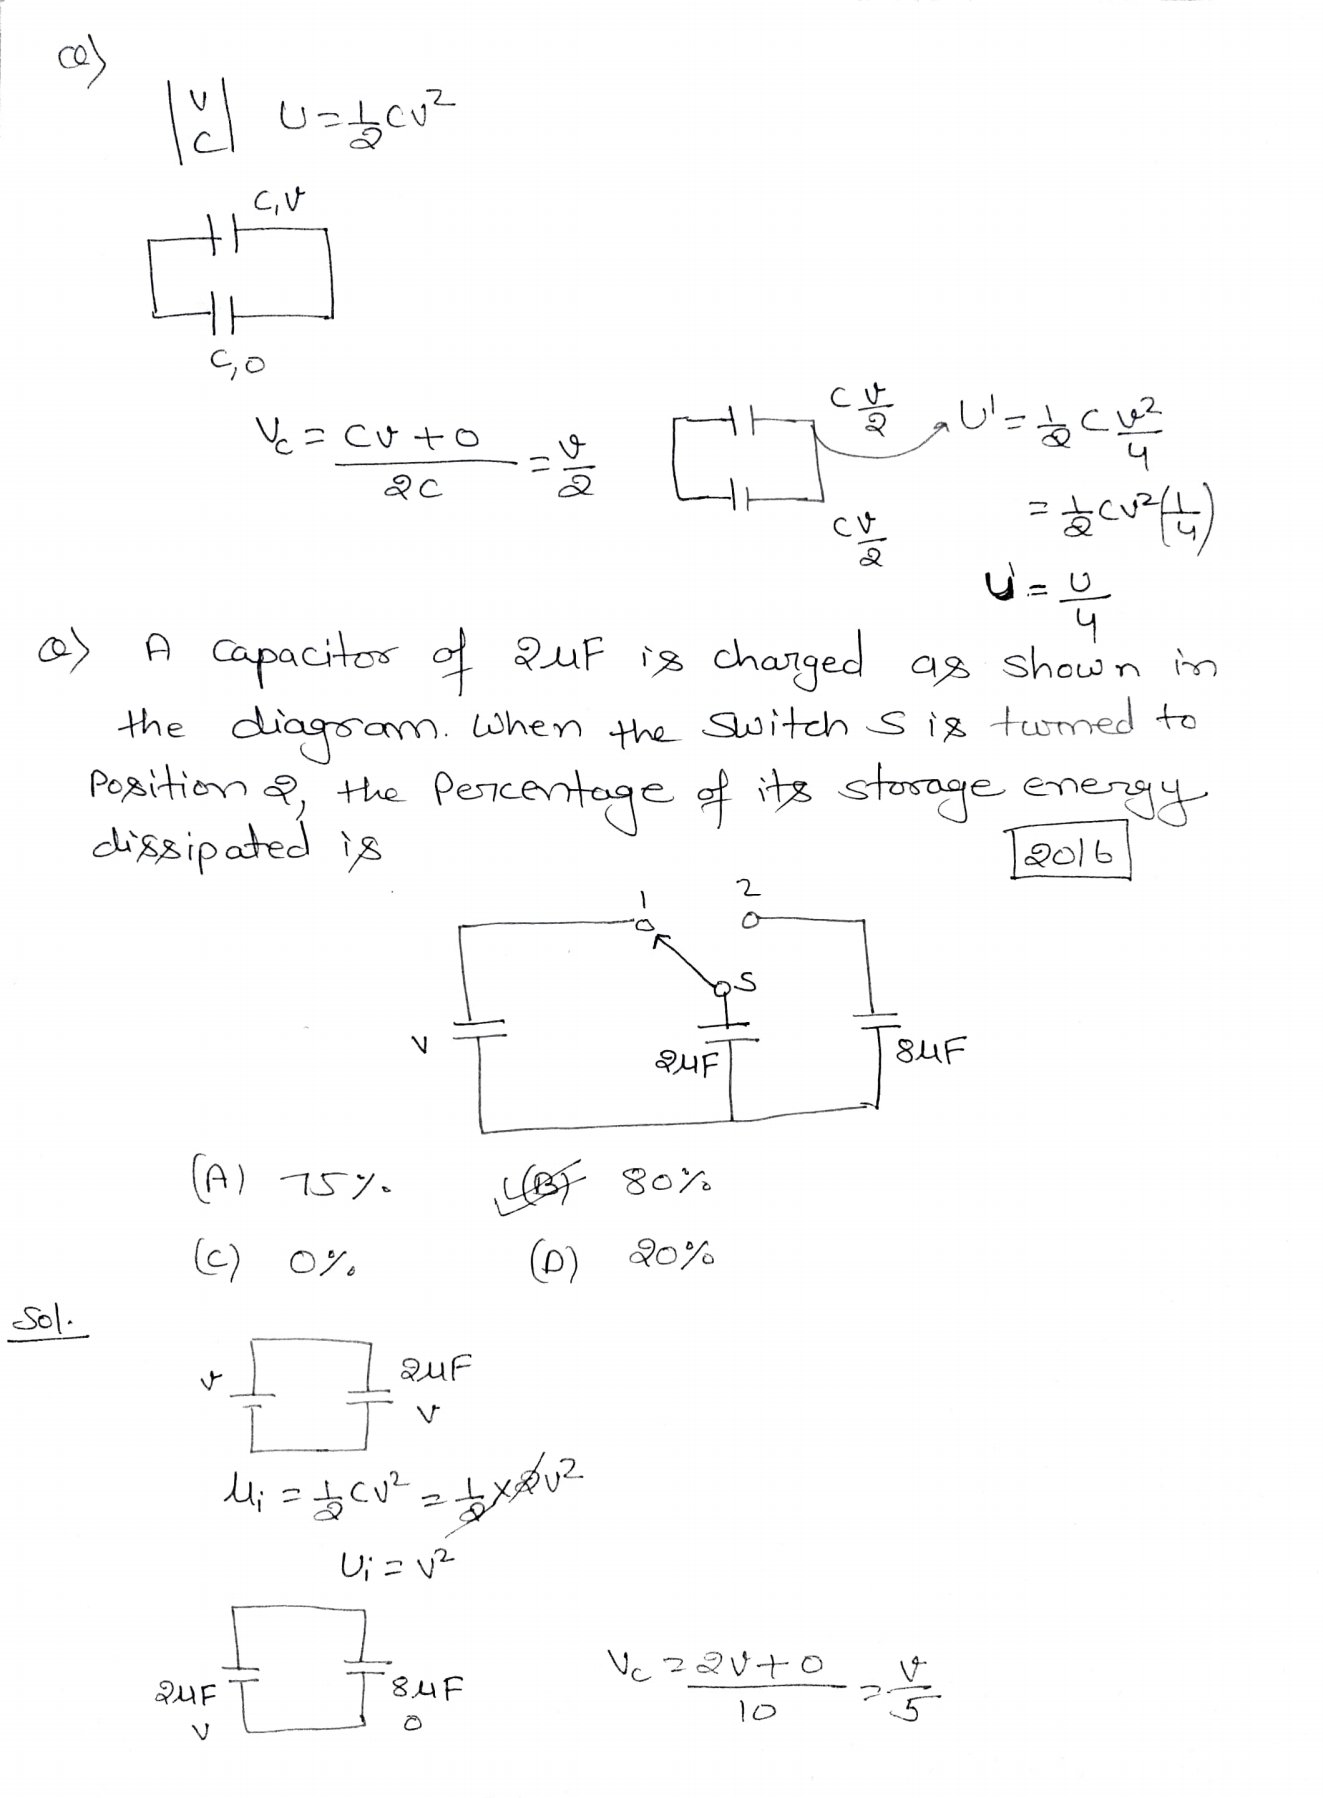 Q)
V
C
U = 1/2 CV²
C, V
C, 0
Vc = (CV + 0)/2C = V/2
C V/2
C V/2
U' = 1/2 C V²/4
= 1/2 CV² (1/4)
U' = U/4
Q) A capacitor of 2μF is charged as shown in
the diagram. When the switch S is turned to
Position 2, the Percentage of its storage energy
dissipated is
2016
1 2
S
V 2μF 8μF
(A) 75% (B) 80%
(C) 0% (D) 20%
Sol.
V 2μF
V
Ui = 1/2 CV² = 1/2 × 2V²
Ui = V²
2μF 8μF
V 0
Vc = (2V + 0)/10 = V/5